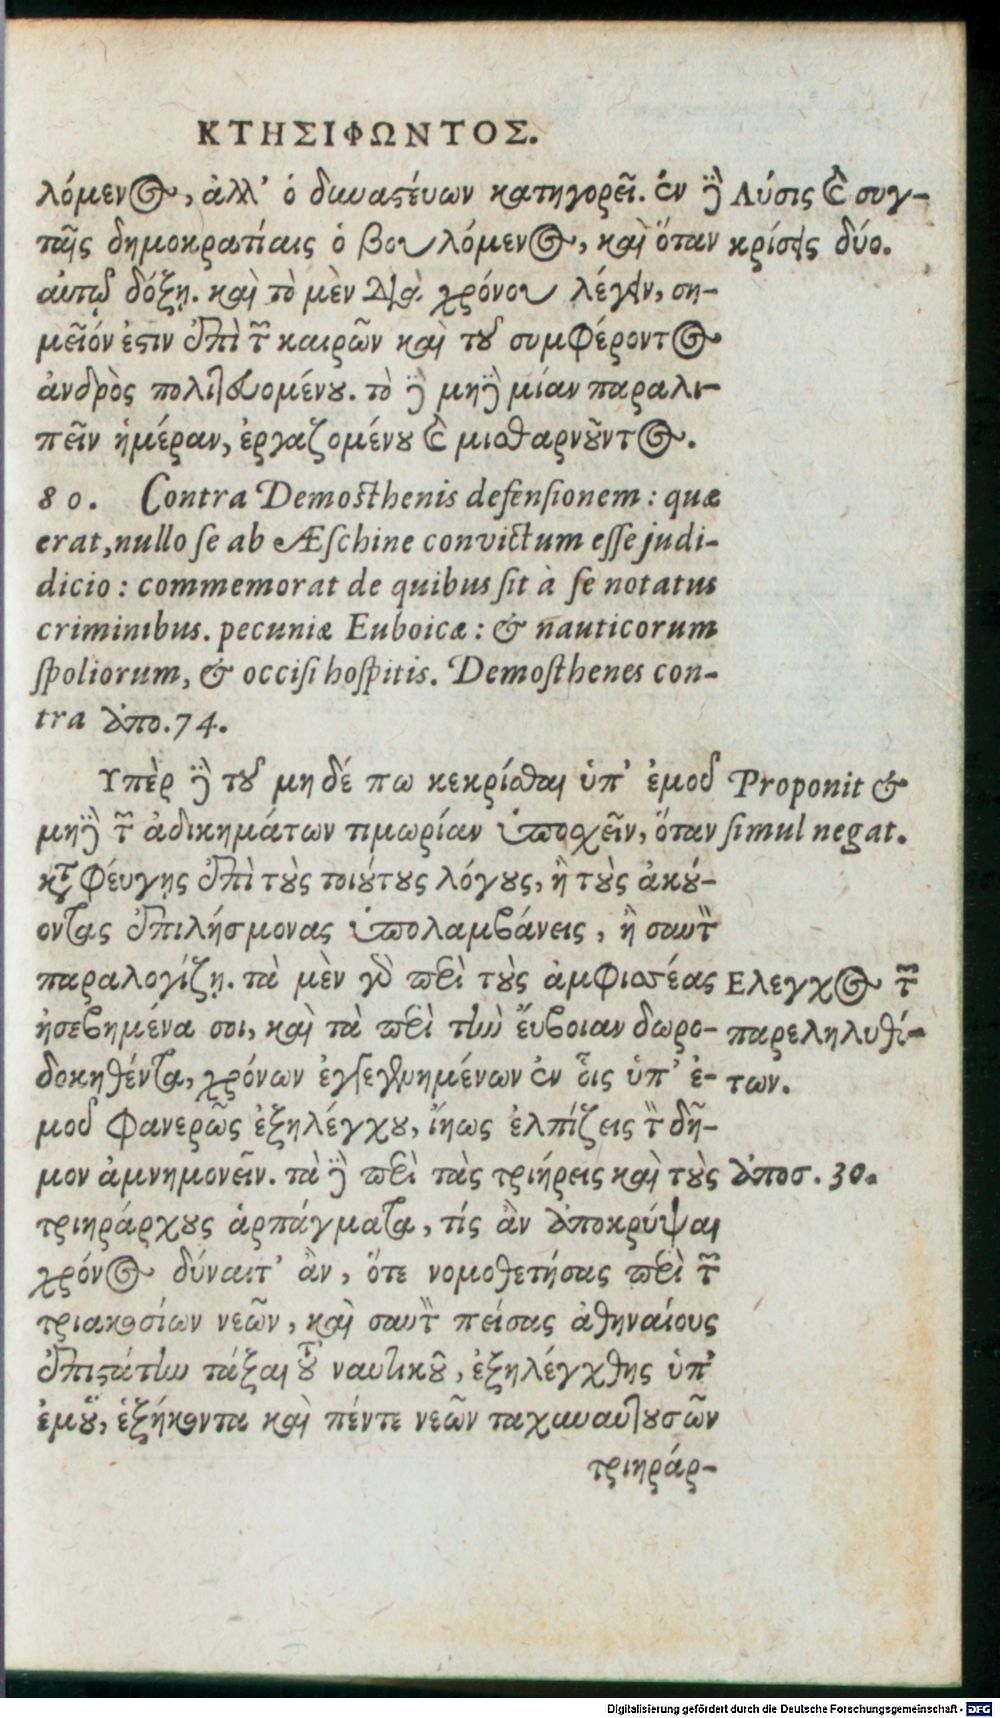 ΚΤΗΣΙΦΩΝΤΟΣ.
λόμενος, ἀλλ' ὁ δυναστεύων κατηγορεῖ. ἐν δὲ
ταῖς δημοκρατίαις ὁ βουλόμενος, καὶ ὅταν
αὐτῷ δόξῃ. καὶ τὸ μὲν διὰ χρόνου λέγειν, ση-
μεῖόν ἐστιν ἐπὶ τῶν καιρῶν καὶ τοῦ συμφέροντος
ἀνδρὸς πολιτευομένου. τὸ δὲ μηδεμίαν παραλι-
πεῖν ἡμέραν, ἐργαζομένου καὶ μισθαρνοῦντος.
Λύσις καὶ συγ-
κρίσεις δύο.
80. Contra Demosthenis defensionem: quæ
erat, nullo se ab Æschine convictum esse judi-
dicio: commemorat de quibus sit à se notatus
criminibus. pecuniæ Euboicæ: & nauticorum
spoliorum, & occisi hospitis. Demosthenes con-
tra ἀπο. 74.
Υπὲρ δὲ τοῦ μηδέ πω κεκρίσθαι ὑπ' ἐμοῦ
μηδὲ τῶν ἀδικημάτων τιμωρίαν ὑποσχεῖν, ὅταν
καταφεύγῃς ἐπὶ τοὺς τοιούτους λόγους, ἢ τοὺς ἀκού-
οντας ἐπιλήσμονας ὑπολαμβάνεις, ἢ σαυτὸν
παραλογίζῃ. τὰ μὲν γὰρ περὶ τοὺς ἀμφισσέας
ἠσεβημένα σοι, καὶ τὰ περὶ τὴν ἔυβοιαν δωρο-
δοκηθέντα, χρόνων ἐγγεγενημένων ἐν οἷς ὑπ' ἐ-
μοῦ φανερῶς ἐξηλέγχου, ἴσως ἐλπίζεις τὸν δῆ-
μον ἀμνημονεῖν. τὰ δὲ περὶ τὰς τριήρεις καὶ τοὺς
τριηράρχους ἁρπάγματα, τίς ἂν ἀποκρύψαι
χρόνος δύναιτ' ἂν, ὅτε νομοθετήσας περὶ τῶν
τριακοσίων νεῶν, καὶ σαυτὸν πείσας ἀθηναίους
ἐπιστάτην τάξαι τοῦ ναυτικοῦ, ἐξηλέγχθης ὑπ'
ἐμοῦ, ἑξήκοντα καὶ πέντε νεῶν ταχυναυτουσῶν
τριηράρ-
Proponit &
simul negat.
Ελεγχος τῶν
παρεληλυθό-
των.
ἀποσ. 30.
Digitalisierung gefördert durch die Deutsche Forschungsgemeinschaft - DFG